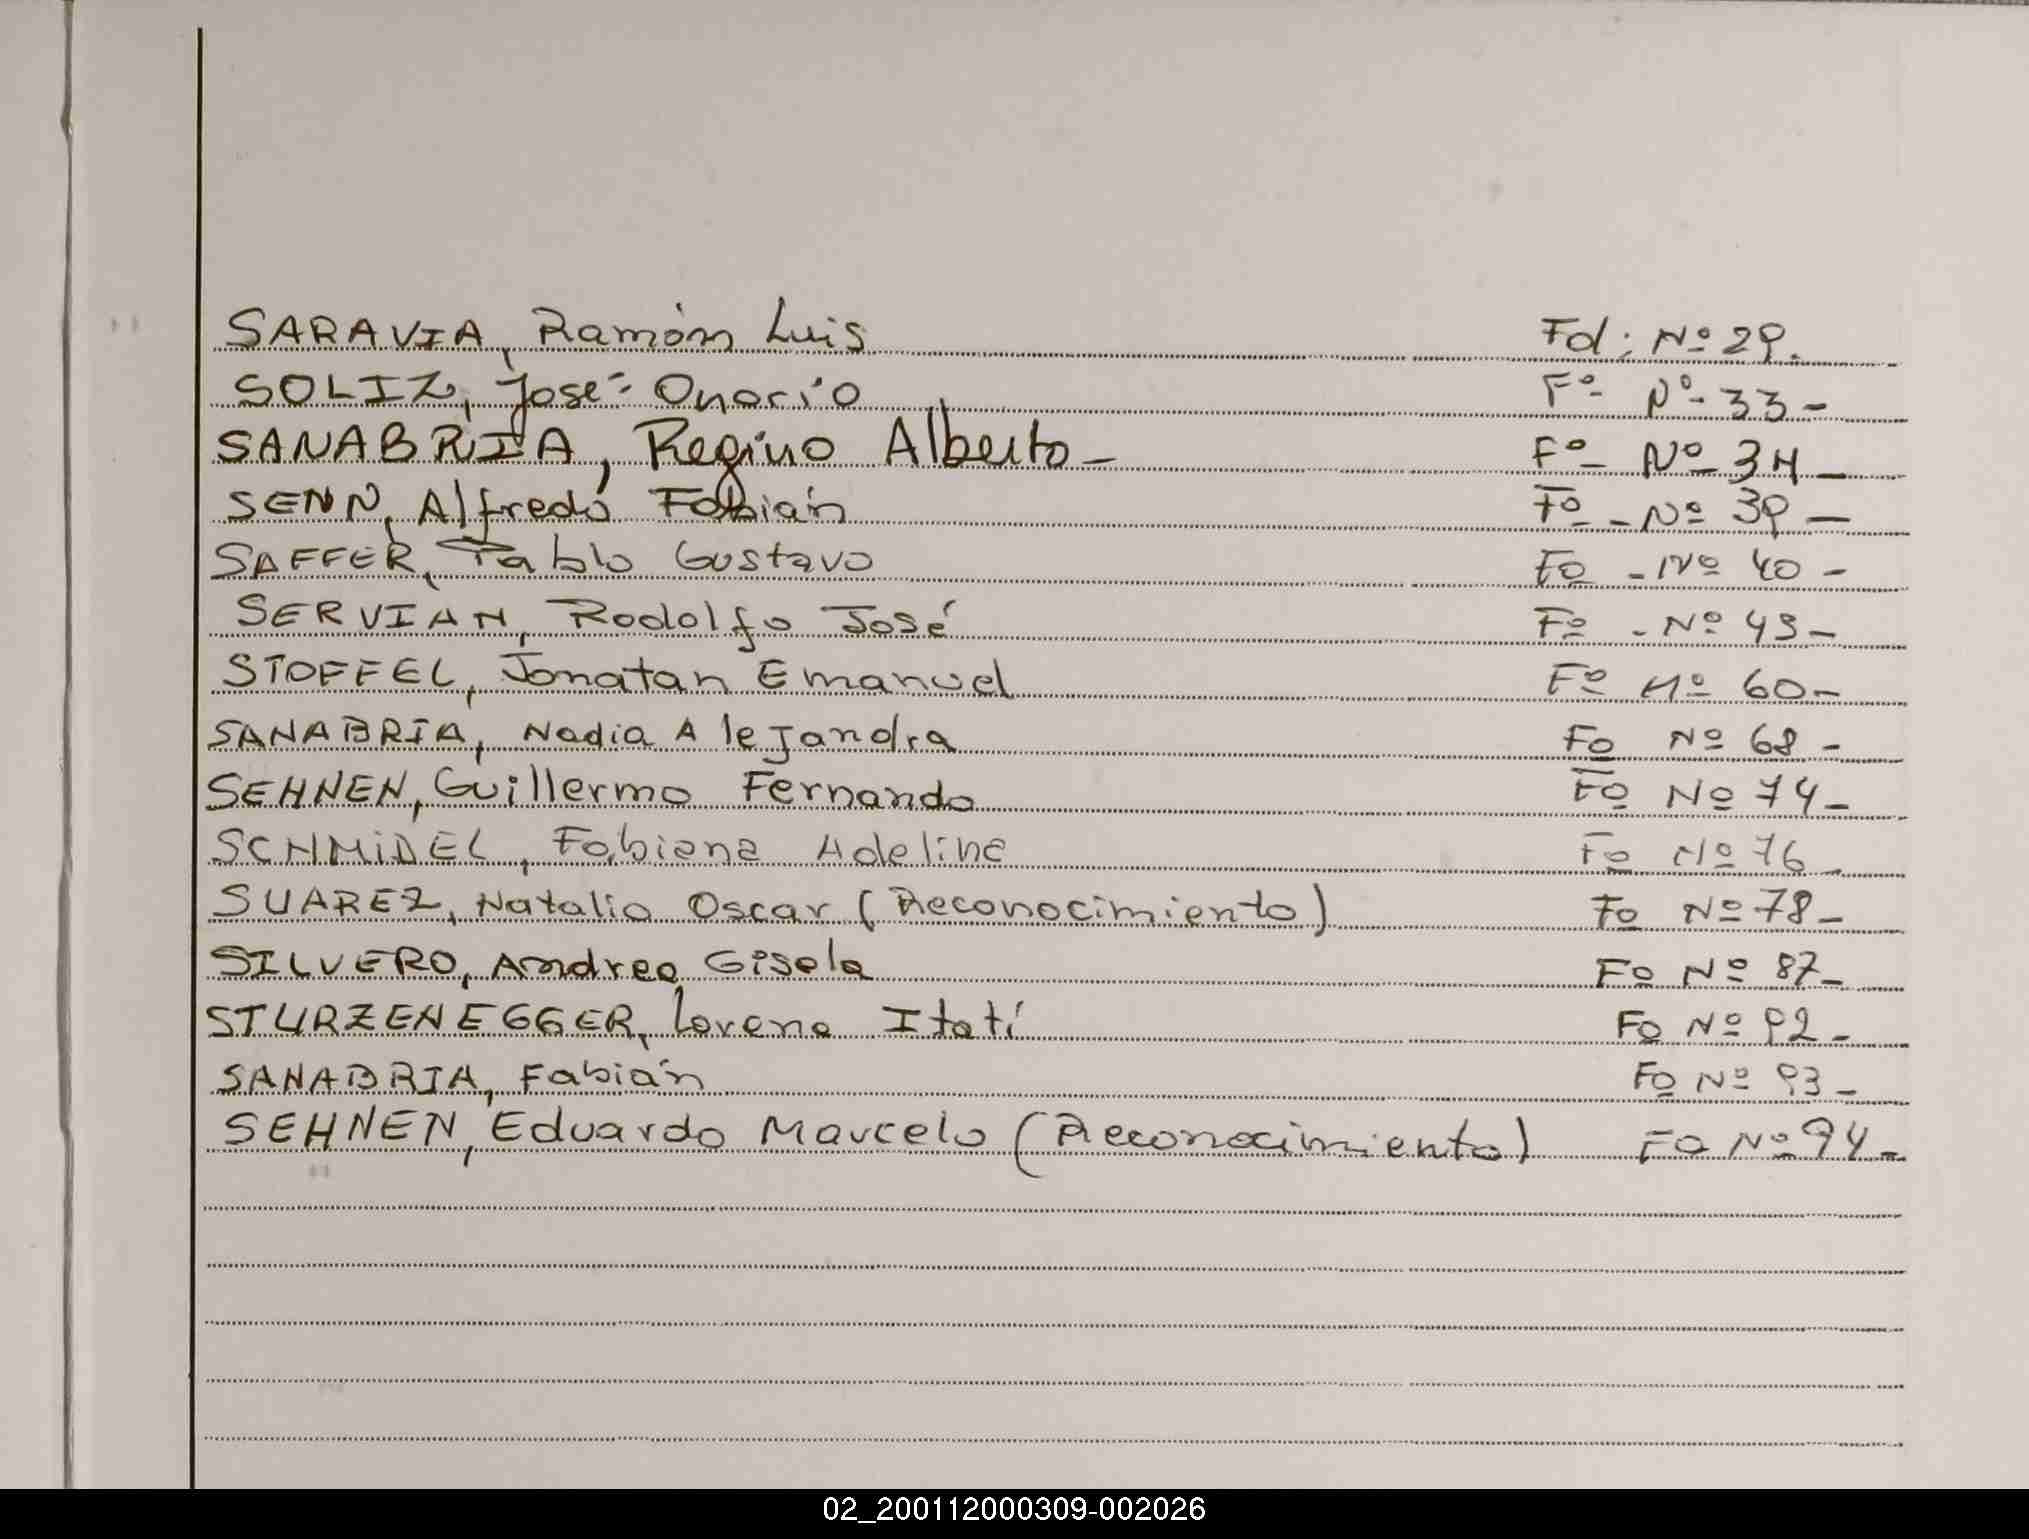 SARAVIA, Ramón Luis Fol: Nº 29.
SOLIZ, José Onorio Fº Nº 33-
SANABRIA, Regino Alberto- Fº Nº 34-
SENN, Alfredo Fabián Fº - Nº 39-
SAFFER, Pablo Gustavo Fº - Nº 40-
SERVIAN, Rodolfo José Fº - Nº 49-
STOFFEL, Jonatan Emanuel Fº Nº 60-
SANABRIA, Nadia Alejandra Fº Nº 68-
SEHNEN, Guillermo Fernando Fº Nº 74-
SCHMiDEL, Fabiana Adeline Fº Nº 76-
SUAREZ, Natalio Oscar (Reconocimiento) Fº Nº 78-
SILVERO, Andrea Gisela Fº Nº 87-
STURZENEGGER, Lorena Itatí Fº Nº 92-
SANABRIA, Fabián Fº Nº 93-
SEHNEN, Eduardo Marcelo (Reconocimiento) Fº Nº 94-
02_200112000309-002026